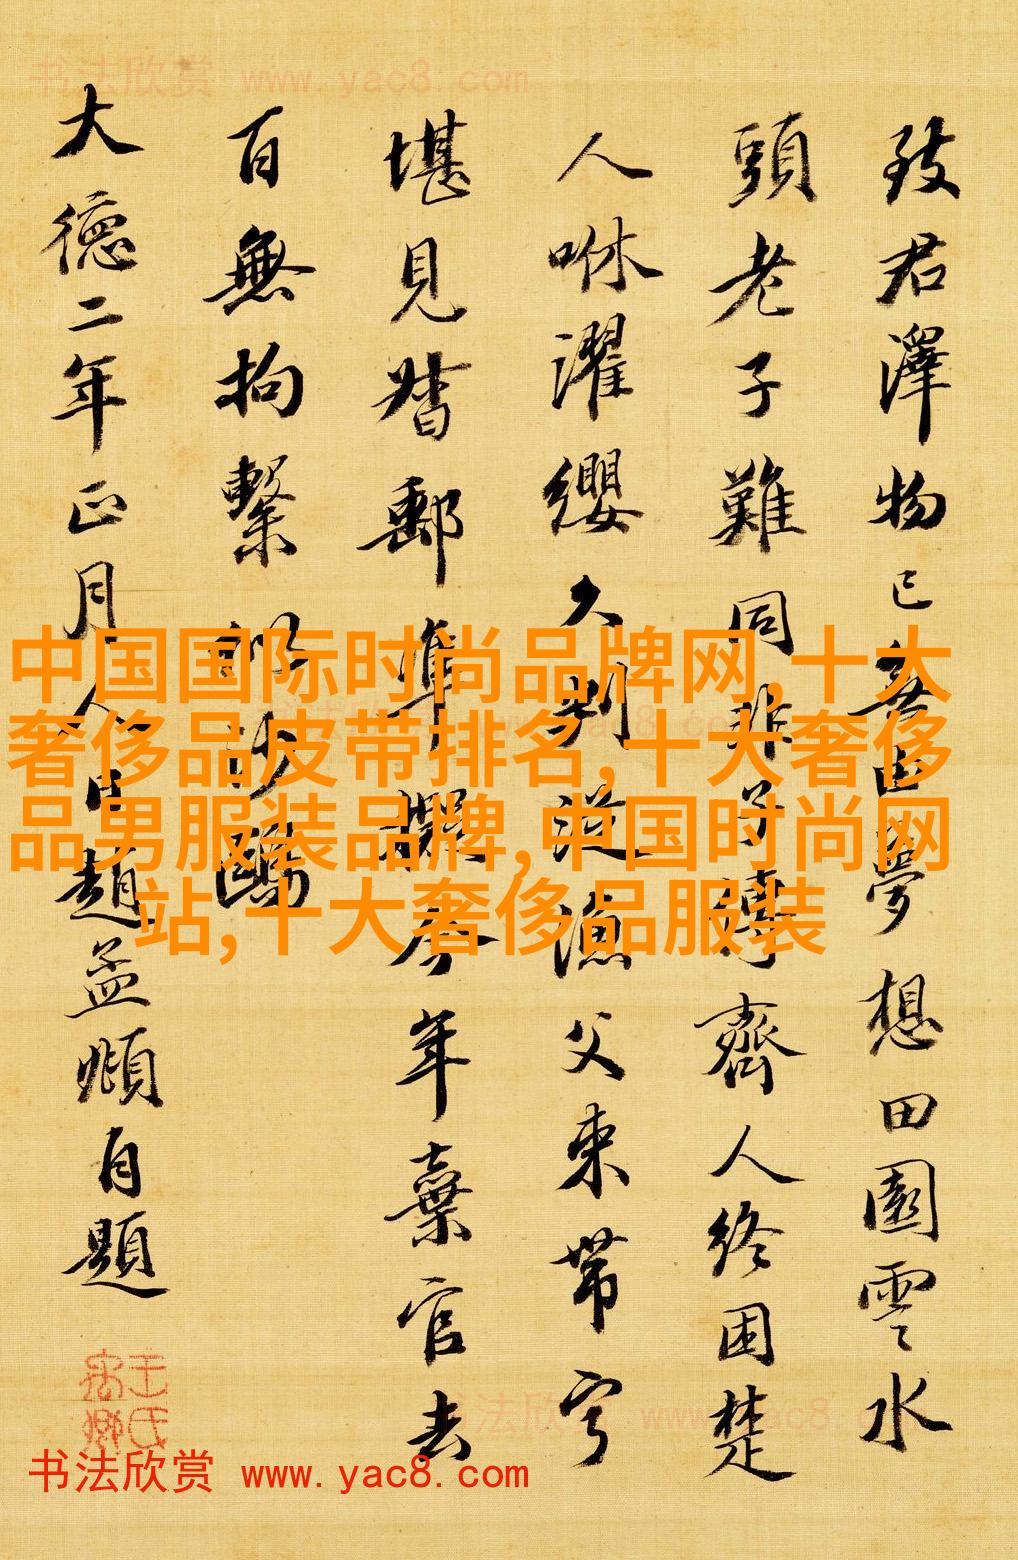 书法欣赏 www.yac8.com
致君澤物已無由夢想田園雲水
頭老子難同非子傳齊人終困楚
人咻濯纓久判從漁父束帶寧
堪見督郵準擬今年棄官去
百無拘繫似沙鷗
大德二年正月人日趙孟頫自題
中国国际时尚品牌网,十大
奢侈品皮带排名,十大奢侈
品男服装品牌,中国时尚网
站,十大奢侈品服装
书法欣赏 www.yac8.com